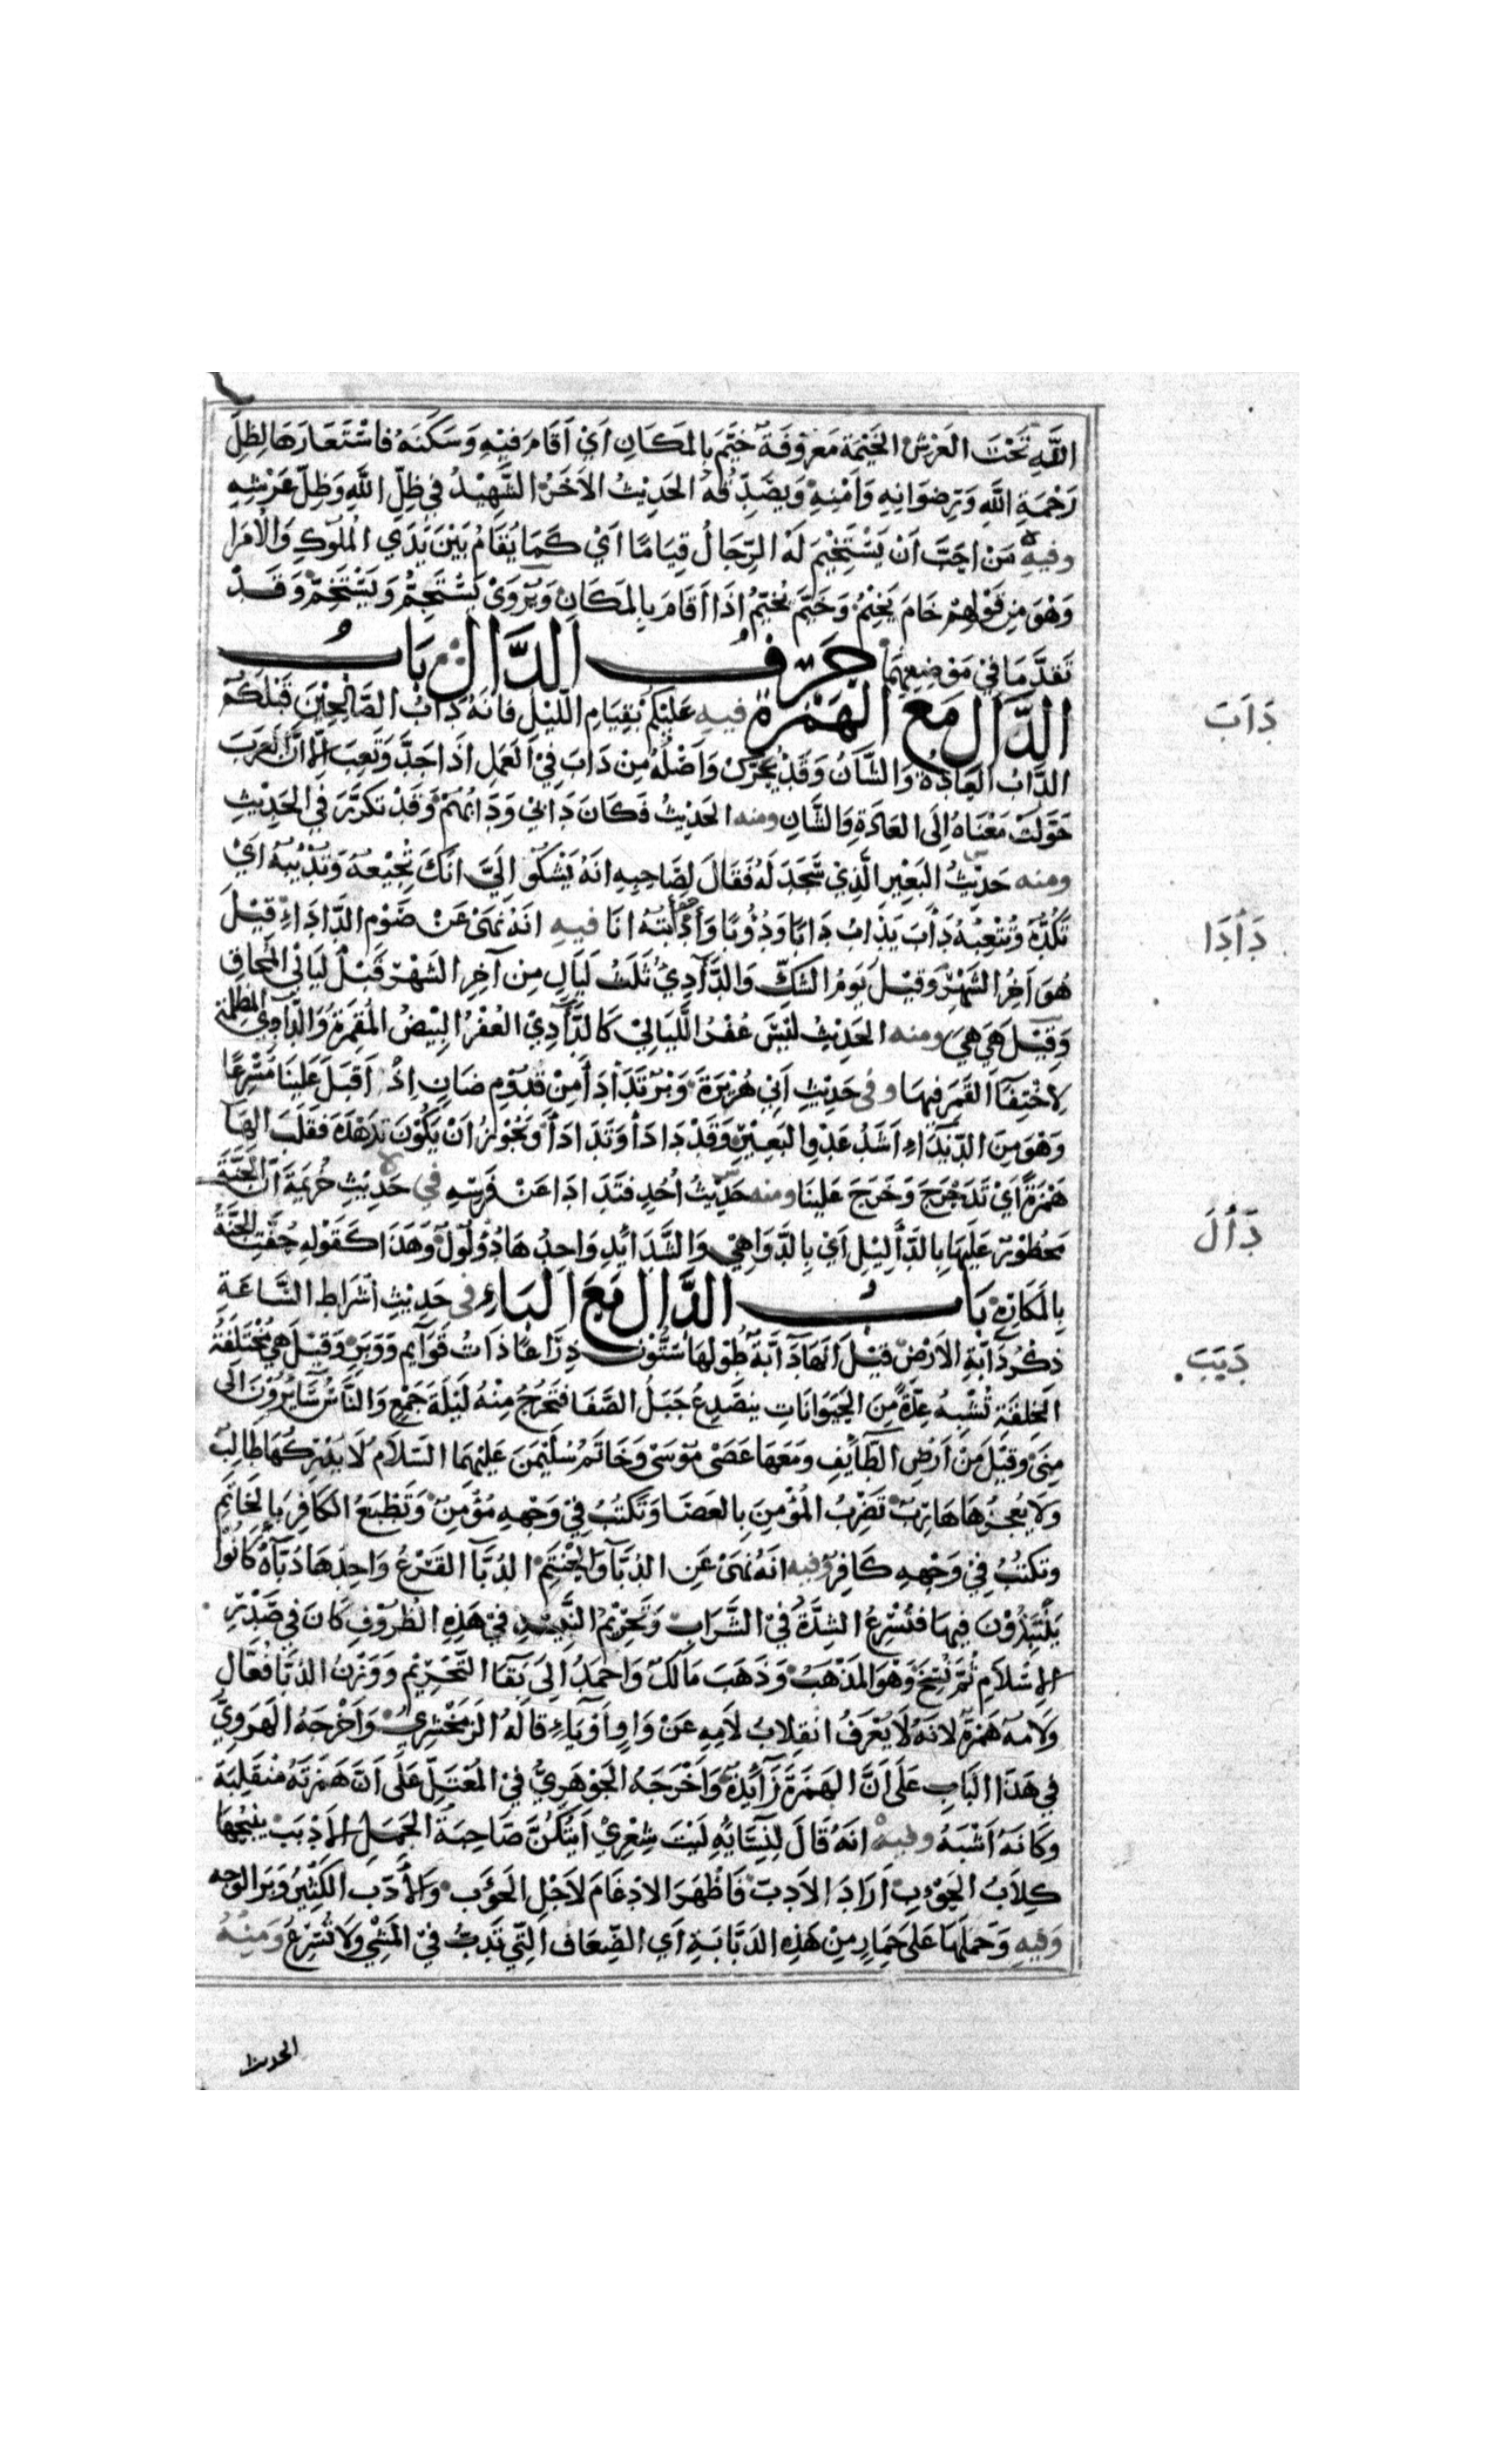 اللَّهِ تَحْتَ العَرْشِ الخَيْمَة مَعْرُوفَةٌ خَيَّمَ بِالمَكَانِ اَيْ اَقَامَ فِيْهِ وَسَكَنَهُ فَاسْتَعَارَهَا لِظِلِّ
رَحْمَةِ اللَّهِ وَرِضوَانِهِ وَاَمْنِهِ وَيصَدِّقُهُ الحَدِيْثُ الاَخَرُ الشَّهِيْدُ فِي ظِلِّ اللَّهِ وَظِلِّ عَرْشِهِ
وفيه مَنْ اَحَبَّ اَنْ يَسْتَخِيْمَ لَهُ الرِّجَالُ قِيَامًا اَيْ كَمَا يُقَامُ بَيْنَ يَدَيِ المُلُوكِ وَالاُمَرا
وَهُوَ مِن قَوْلِهِمْ خَامَ يَخِيْمُ وَخَيَّمَ يُخَيِّمُ اِذَا اَقَامَ بِالمَكَانِ وَيُرْوَىْ يَسْتَجِمُّ وَيَسْتَخِمُّ وَقَدْ
تَقَدَّمَا فِيْ مَوْضِعِهِمَا حَرْفُ الدَّال بَابُ
الدَّالِ مَعَ الهَمْزَةِ فيه عَلَيْكُمْ بِقِيَامِ اللَّيْلِ فَاِنَّهُ دَأْبُ الصَّالِحِيْنَ قَبْلَكُمْ
الدَّأبُ العَادَةُ وَالشَّأنُ وَقَدْ يُحَرَّكُ وَاَصْلُهُ مِن دَابَ فِيْ العَمَلِ اِذَا جَدَّ وَتَعِبَ اِلَّا اَنَّ العَرَبَ
حَوَّلَتْ مَعْنَاهُ اِلَى العَادَةِ وَالشَّانِ ومنه الحَدِيْثُ فَكَانَ دَابِي وَدَابُهُمْ وَقَدْ تَكَرَّرَ فِي الحَدِيْثِ
ومنه حَدِيْثُ البَعِيْرِ الَّذِيْ سَجَدَ لَهُ فَقَالَ لِصَاحِبِهِ اِنَّهُ يَشْكُو اِلَيَّ اَنَّكَ تُجِيْعُهُ وَتُدْئِبُهُ اَيْ
تَكُدُّهُ وَتُتْعِبُهُ دَأَبَ يَدْأَبُ دَابًا وَدُؤُبًا وَأَدْأَبْتُهُ اَنَا فيه اَنَّهُ نَهَىْ عَنْ صَوْمِ الدَّادَاءِ قِيْلَ
هُوَ اَخِرُ الشَّهْرِ وَقِيْلَ يَوْمُ الشَّكِّ وَالدَّآدِيْ ثَلَثُ لَيَالٍ مِن آخِرِ الشَّهْرِ قَبْلَ لَيَالِي المُحَاقِ
وَقِيْلَ هِيَ هِيَ ومنه الحَدِيْثِ لَيْسَ عُفْرُ اللَّيَالِيْ كَالدَّآدِيْ العُفْرُ البِيْضُ المُقمِرَةُ وَالدَّآدِيْ المُظلِمَة
لِاخْتِفَآءِ القَمَرِ فِيهَا وفى حَدِيْثِ اَبِي هُرَيْرَةَ وَبْرٌ تَدَأْدَأَ مِنْ قَدُوْمِ ضَانٍ اِذْ اَقبَلَ عَلَيْنَا مُسْرِعًا
وَهُوَ مِنَ الدِّئْدَاءِ اَشَدُّ عَدْوِ البَعِيْرِ وَقَدْ دَادَأَ وَتَدَادَأَ وَيَجُوْزُ اَنْ يَكُوْنَ تَدَهْدَهَ فَقَلَبَ الهَا
هَمْزَةً اَيْ تَدَحْرَجَ وَخَرَجَ عَلَيْنَا ومنه حَدِيْثُ اُحُدٍ فتَدَادَا عَنْ فَرَسِهِ فِي حَدِيْثِ خُزَيْمَةَ اَنَّ الجَنَّةَ
مَحْظُوْرٌ عَلَيْهَا بِالدَّأَلِيْلِ اَيْ بِالدَّوَاهِيْ وَالشَّدَائِدِ وَاحِدُهَا دُؤْلُولٌ وَهَذَا كَقَوْلِهِ حُفَّتِ الجَنَّةُ
بِالمَكَارِهِ بَابُ الدَّالِ مَعَ البَاءِ فى حَدِيْثِ اَشْرَاطِ السَّاعَةِ
ذِكْرُ دَآبَّةِ الاَرْضِ قِيْلَ اَنَّهَا دَآبَّةٌ طُوْلُهَا سِتُّوْنَ ذِرَاعًا ذَاتُ قَوَآيِمَ وَوَبَرٍ وَقِيْلَ هِيَ مُخْتَلَفَةُ
الخِلقَةِ تُشْبِهُ عِدَّةً مِنَ الحَيَوَانَاتِ يَنصَدِعُ جَبَلُ الصَّفَا فَتَخْرُجُ مِنْهُ لَيْلَةَ جَمْعٍ وَالنَّاسُ سَايِرُوْنَ اِلَى
مِنَى وَقِيْلَ مِنْ اَرْضِ الطَّايِفِ وَمَعَهَا عَصَىْ مُوْسَىْ وَخَاتَمُ سُلَيْمَنَ عَلَيْهِمَا السَّلَامُ لَا يُدْرِكُهَا طَالِبٌ
وَلَا يُعجِزُهَا هَارِبٌ تَضْرِبُ المُؤْمِنَ بِالعَصَا وَتَكْتُبُ فِيْ وَجْهِهِ مُؤْمِنٌ وَتَطْبَعُ الكَافِرَ بِالخَاتِمِ
وَتَكتُبُ فِيْ وَجْهِهِ كَافِرٌ وفيه اَنَّهُ نَهَىْ عَنِ الدُّبَّآ وَالحَنْتَمِ الدُّبَّآ القَرْعُ وَاحِدُهَا دُبَّآةٌ كَانُوْا
يَنْتَبِذُوْنَ فِيهَا فتُسْرِعُ الشِدَّةُ فِيْ الشَّرَابِ وَتَحْرِيْمُ النَّبِيْذِ فِيْ هَذِهِ الظُرُوْفِ كَانَ فِيْ صَدْرِ
الاِسْلَامِ ثُمَّ نُسِخَ وَهُوَ المَذْهَبُ وَذَهَبَ مَالِكٌ وَاَحْمَدُ اِلَى بَقَآ التَّحْرِيْمِ وَوَزْنُ الدُّبَّا فُعَّالٌ
وَلَامُهُ هَمْزَةٌ لِاَنَّهُ لَا يُعْرَفُ انْقِلَابُ لَامِهِ عَنْ وَاوٍ اَوْ يَاءٍ قَالَهُ الزَّمَخْشَرِيُّ وَاَخْرَجَهُ الهَرَوِيُّ
فِي هَذَا البَابِ عَلَى اَنَّ الهَمْزَةَ زَآيِدَةٌ وَاَخْرَجَهُ الجَوْهَرِيُّ فِيْ المُعْتَلِّ عَلَى اَنَّ هَمْزَتَهُ مُنْقَلِبَةٌ
وَكَاَنَّهُ اَشْبَهُ وفيه اَنَّهُ قَالَ لِنِسَآيِهِ لَيْتَ شِعْرِيْ اَيَّتُكُنَّ صَاحِبَةُ الجَمَلِ الاَدْبَبِ يَنْبَحُهَا
كِلَابُ الحَوْءَبِ اَرَادَ الاَدَبَّ فَاَظْهَرَ الاِدغَامَ لِاَجْلِ الحَوْءَبِ وَالأَدَبّ الكَثِيْرُ وَبَرِ الوَجه
وَفِيهِ وَحَمَلَهَا عَلَى حِمَارٍ مِنْ هَذِهِ الدَبَّابَةِ اَيِ الضِّعَافِ الَّتِيْ تَدِبُّ فِيْ المَشْيِ وَلَا تُسْرِعُ وَمِنْهُ
الحديث
دَاَبَ
دَأدَا
دَأَلَ
دَبَبَ